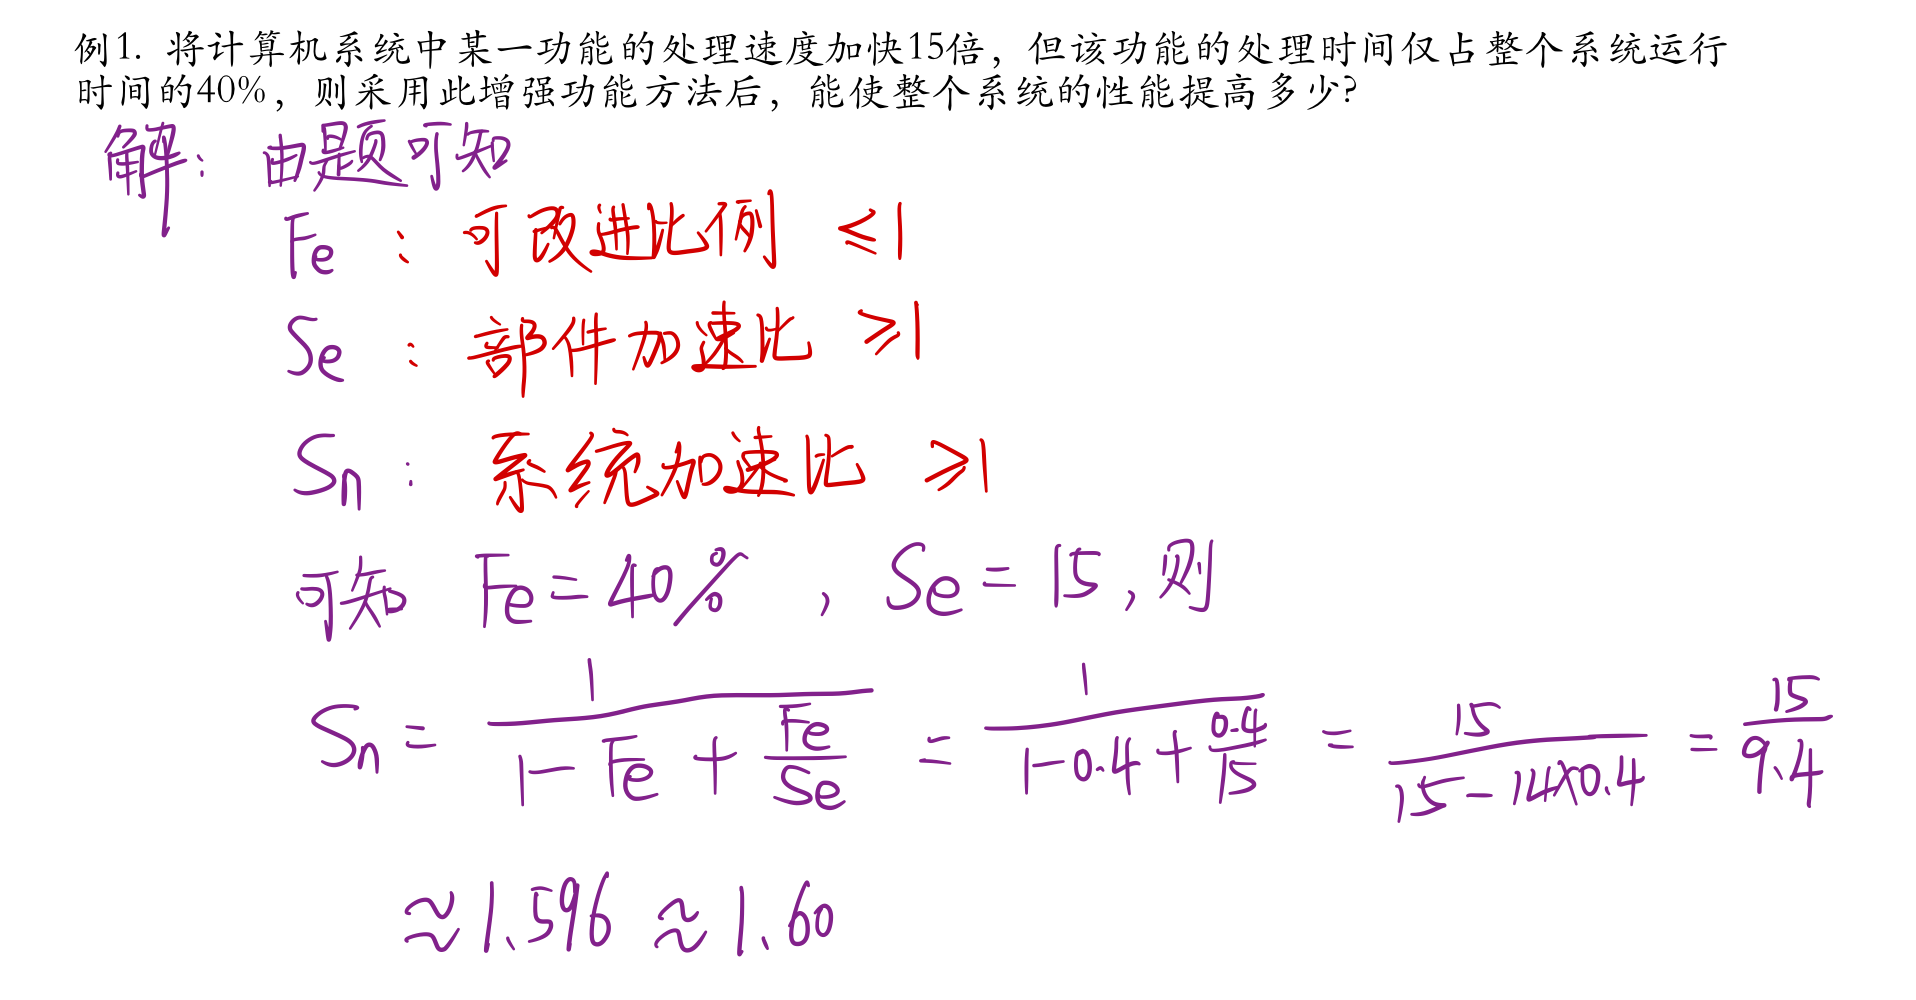 例1. 将计算机系统中某一功能的处理速度加快15倍，但该功能的处理时间仅占整个系统运行
时间的40%，则采用此增强功能方法后，能使整个系统的性能提高多少?
解：由题可知
Fe : 可改进比例 ≤1
Se : 部件加速比 ≥1
Sn : 系统加速比 ≥1
可知 Fe = 40% , Se = 15, 则
Sn = 1/(1 - Fe + Fe/Se) = 1/(1-0.4 + 0.4/15) = 15/(15-14×0.4) = 15/9.4
≈ 1.596 ≈ 1.60